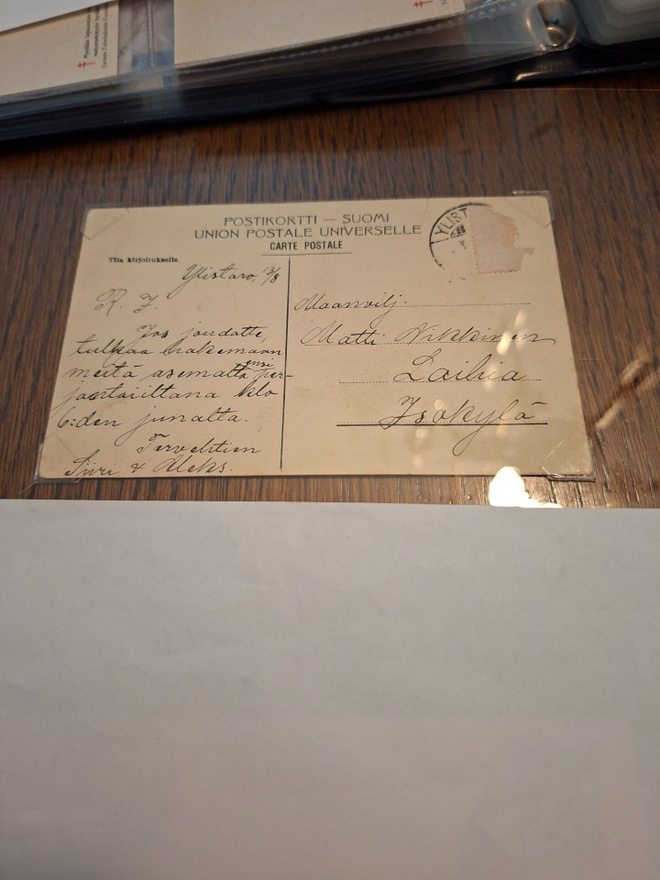 POSTIKORTTI — SUOMI
UNION POSTALE UNIVERSELLE
CARTE POSTALE
Tila kirjoitukselle.
Ylistaro 13/8
R. J.
Jos joudatte,
tulkaa hakemaan
meitä asemalta ensi per-
jantaiittana klo
6:den junalta.
Tervehtien
Siiri & Aleks.
YLIST
Maanvilj.
Matti Nikkinen
Laihia
Isokylä